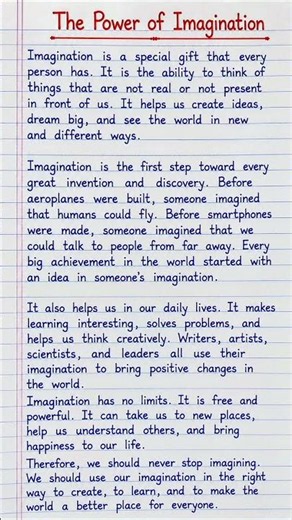 The Power of Imagination
Imagination is a special gift that every
person has. It is the ability to think of
things that are not real or not present
in front of us. It helps us create ideas,
dream big, and see the world in new
and different ways.
Imagination is the first step toward every
great invention and discovery. Before
aeroplanes were built, someone imagined
that humans could fly. Before smartphones
were made, someone imagined that we
could talk to people from far away. Every
big achievement in the world started with
an idea in someone's imagination.
It also helps us in our daily lives. It makes
learning interesting, solves problems, and
helps us think creatively. Writers, artists,
scientists, and leaders all use their
imagination to bring positive changes in
the world.
Imagination has no limits. It is free and
powerful. It can take us to new places,
help us understand others, and bring
happiness to our life.
Therefore, we should never stop imagining.
We should use our imagination in the right
way to create, to learn, and to make the
world a better place for everyone.